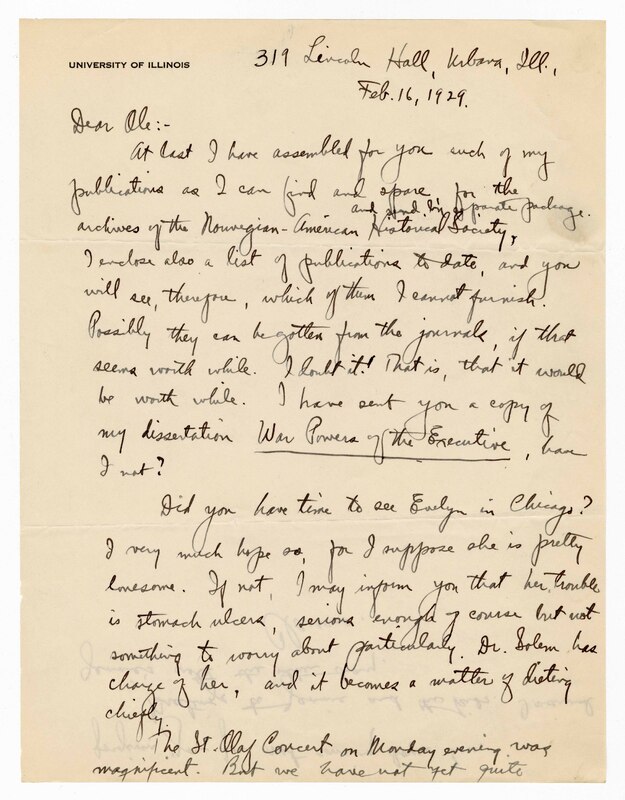 UNIVERSITY OF ILLINOIS
319 Lincoln Hall, Urbana, Ill.,
Feb. 16, 1929.
Dear Ole:-
At last I have assembled for you such of my
publications as I can find and spare for the
and send in separate package.
archives of the Norwegian-American Historical Society,
I enclose also a list of publications to date, and you
will see, therefore, which of them I cannot furnish.
Possibly they can be gotten from the journals, if that
seems worth while. I doubt it! That is, that it would
be worth while. I have sent you a copy of
my dissertation War Powers of the Executive, have
I not?
Did you have time to see Evelyn in Chicago?
I very much hope so, for I suppose she is pretty
lonesome. If not, I may inform you that her trouble
is stomach ulcers, serious enough of course but not
something to worry about particularly. Dr. Solem has
charge of her, and it becomes a matter of dieting
chiefly.
The St. Olaf Concert on Monday evening was
magnificent. But we have not yet quite